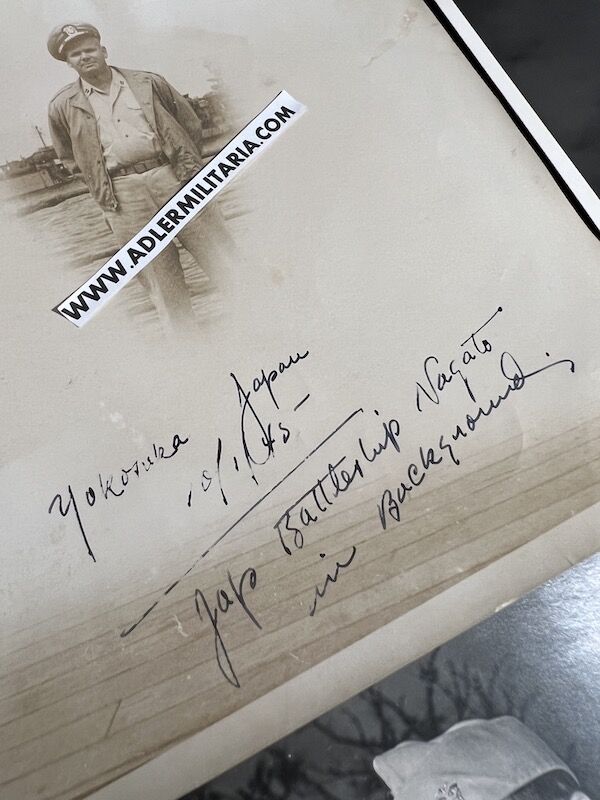 WWW.ADLERMILITARIA.COM
Yokosuka Japan
10/1/45-
Jap Battleship Nagato
in Background.